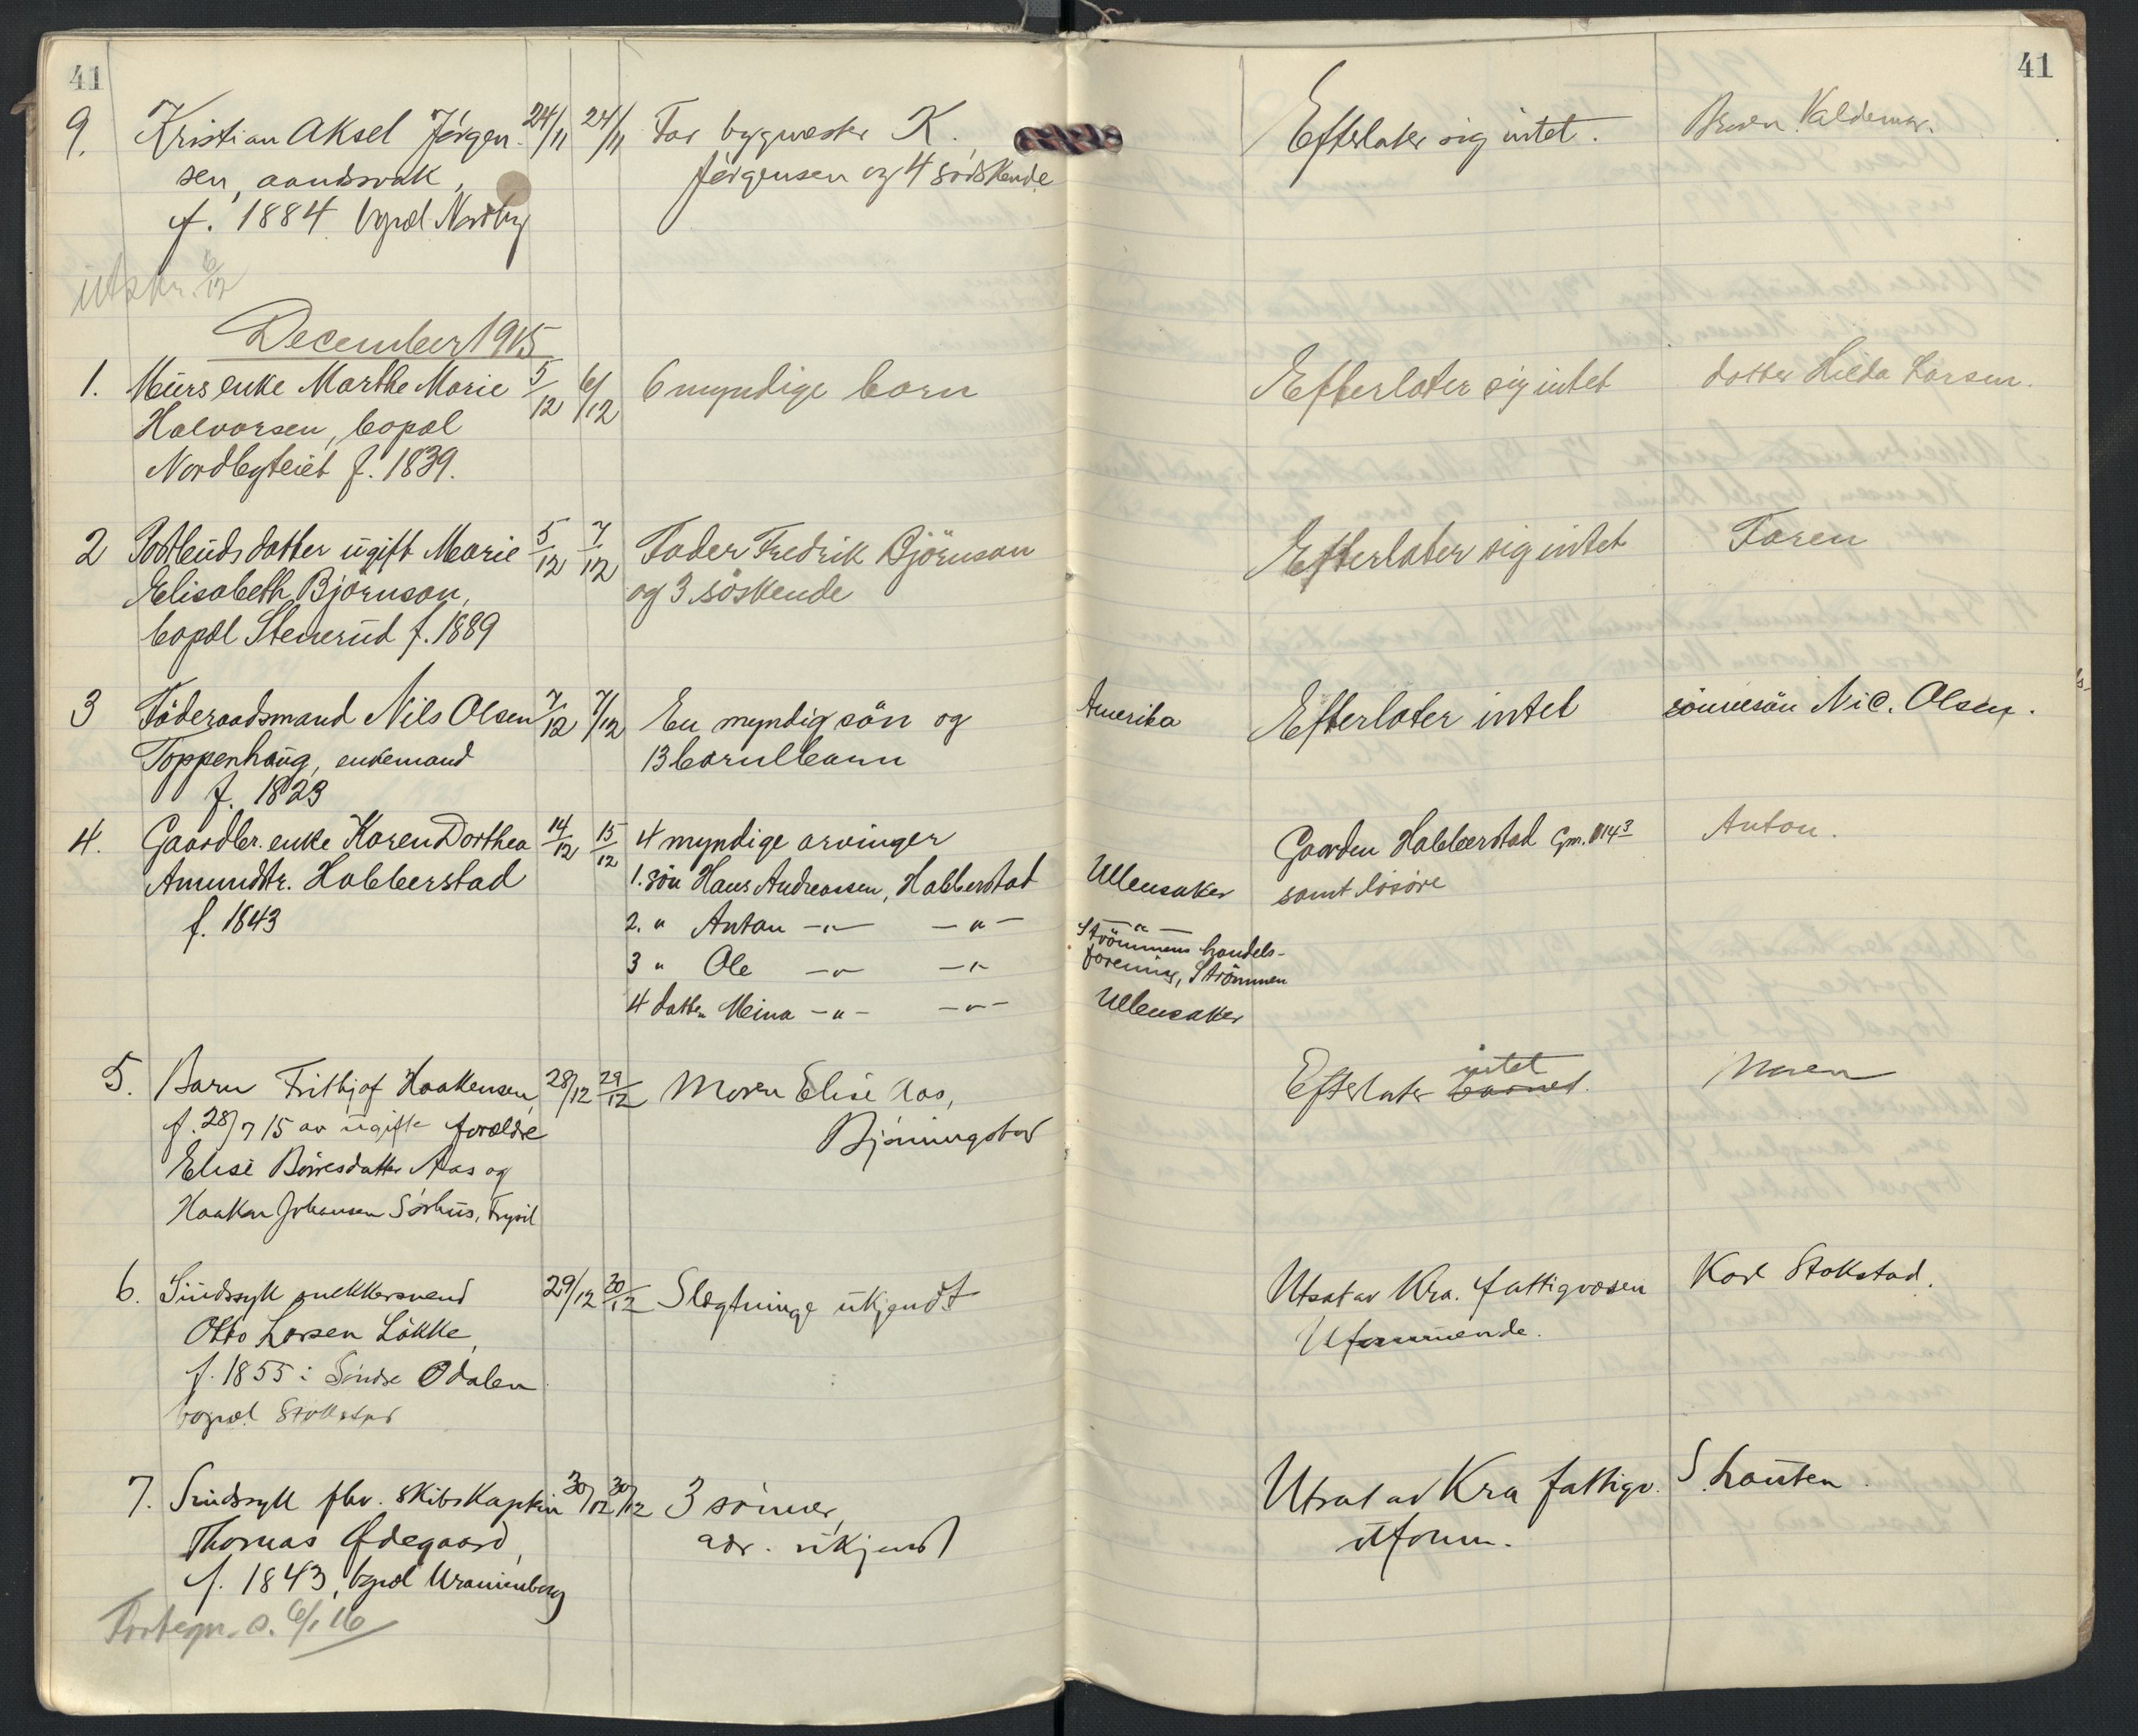 41
41
9. Kristian Aksel Jörgen- 24/11 24/11 Far bygmester K. Efterlater sig intet. Broren Valdemar.
sen, aandssvak, Jörgensen og 4 södskende
f. 1884 bopæl Nordby
utskr. 6/12
December 1915
1. Murs enke Marthe Marie 5/12 6/12 6 myndige barn Efterlater sig intet datter Hilda Larsen.
Halvorsen, bopæl
Nordbyteiet f. 1839.
2 Postbuds datter ugift Marie 5/12 7/12 Fader Fredrik Björnson Efterlater sig intet Faren
Elisabeth Björnson, og 3 söskende
bopæl Stenerud f. 1889
3 Föderaadsmand Nils Olsen 7/12 7/12 En myndig sön og Amerika Efterlater intet sönnesön Nic. Olsen.
Toppenhaug, enkemand 13 barnebarn
f. 1823
4. Gaardbr. enke Karen Dorthea 14/12 15/12 4 myndige arvinger Gaarden Habberstad Gm. 114 3 Anton.
Amundstr. Habberstad 1. sön Hans Andreassen, Habberstad Ullensaker samt lösöre
f. 1843 2. " Anton -"- -"- -"-
3 " Ole -"- -"- Strömmens handels-
forening, Strömmen
4 datter Meina -"- -"- Ullensaker
5. Barn Frithjof Haakensen, 28/12 29/12 Moren Elise Aas, Efterlater barnet intet. Moren
f. 28/7 15 av ugifte forældre Bjönningstad
Elise Börresdatter Aas og
Haakon Johansen Sörhus, Trysil
6. Sindssyk snekkersvend 29/12 30/12 Slegtninge ukjendt Utsat av Kra. fattigvæsen Karl Stokstad.
Otto Larsen Lökke, Uformuende.
f. 1855 i Söndre Odalen
bopæl Stokstad
7. Sindssyk fhv. skibskaptein 30/12 30/12 3 sönner, Utsat av Kra fattigv. S.
Thomas Ødegaard, adr. ukjendt uform.
f. 1843, bopæl Uranienborg
Fortegn. s. 6/1 16